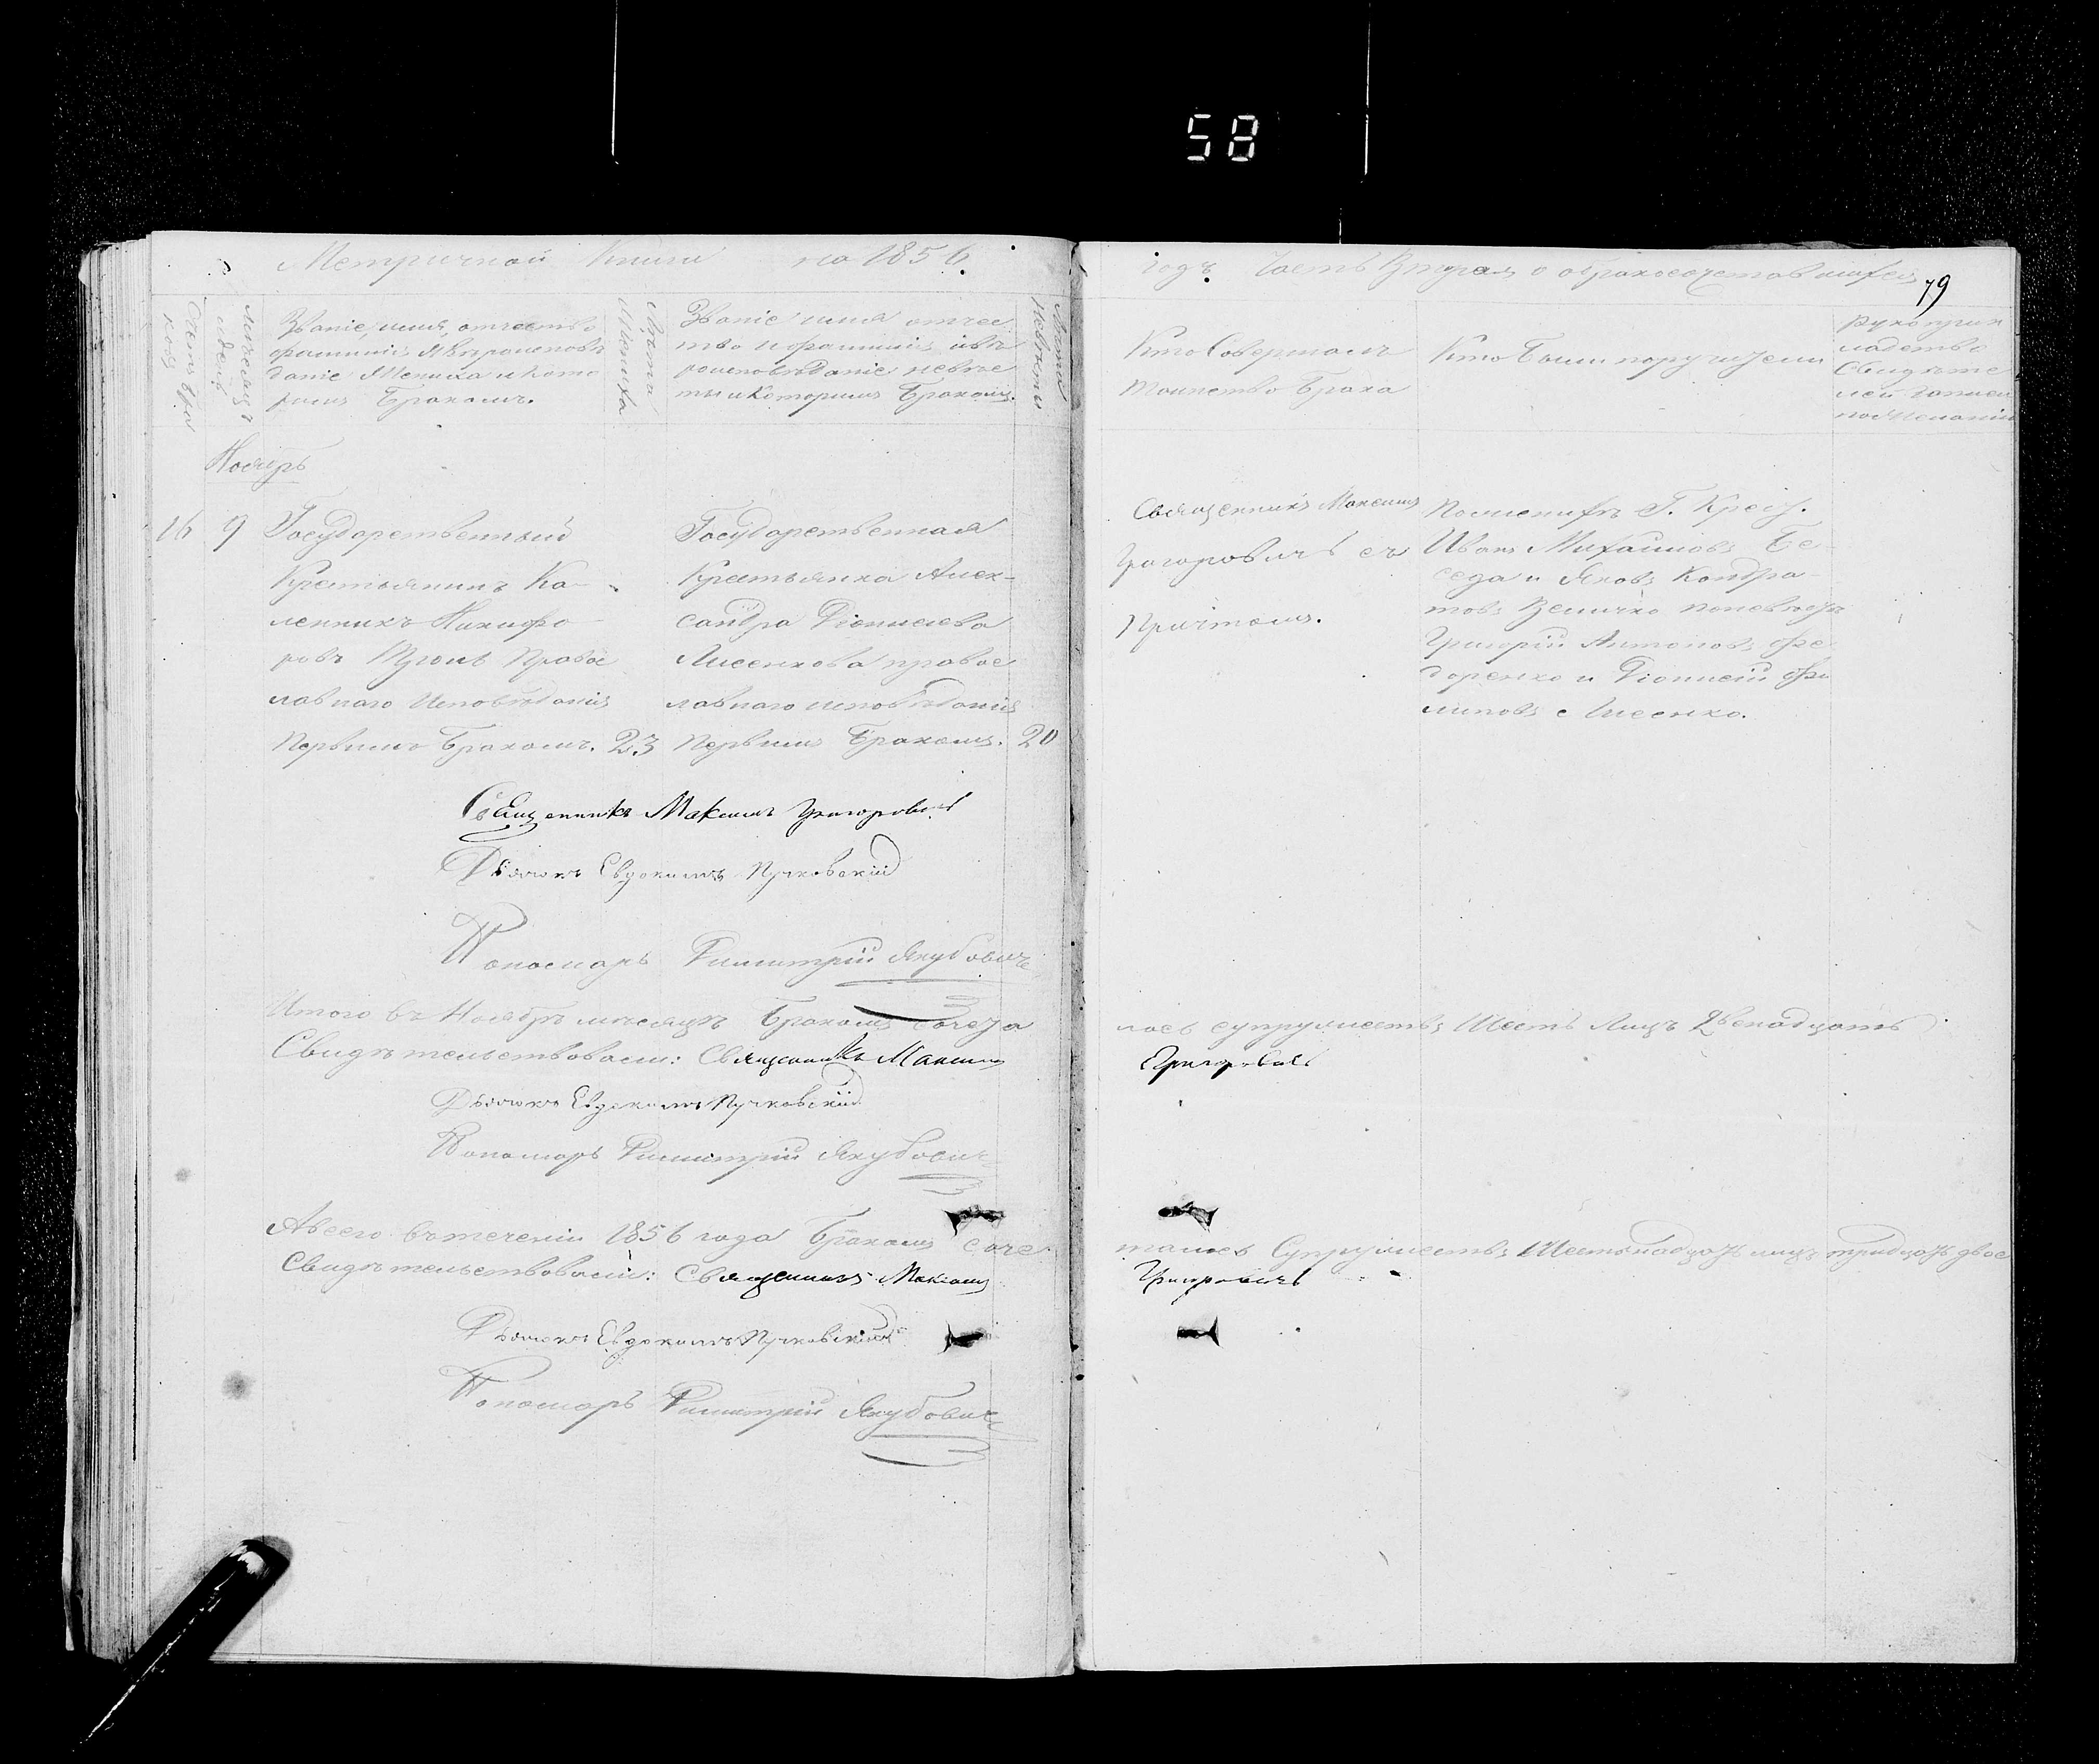 58
Метричной Книги на 1856.
годъ. Часть Вторая о бракосочетавшихся
79
Счетъ брако
ковъ
Месяцъ
и день
Званіе, имя, отчество
фамиліи и вероисповѣ
даніе Жениха и кото
рымъ Бракомъ.
Лѣта
Жениха
Званіе имя отчес
тво и фамилія и вѣ
роисповѣданіе невѣс
ты и которымъ Бракомъ.
Лѣта
Невѣсты
Кто Совершалъ
Таинство Брака
Кто Были поручители
Рукоприк
ладство
Свидѣте
лей записи
по желанію
Ноябрь
16 9 Государственный
Крестьянинъ Ка-
ленникъ Никифо
ровъ Православ
лавнаго Исповѣданія
Первымъ Бракомъ. 23
Государственная
Крестьянка Алек-
сандра Діонисіева
Лисенкова правос
лавнаго исповѣданія
Первымъ Бракомъ. 20
Священникъ Максимъ
Григоровичъ съ
Причтомъ.
По женихѣ Г. Крест.
Иванъ Михайловъ Бе-
седа и Яковъ Кондра-
товъ Величко по невѣстѣ
Григорій Антоновъ Фе
доренко и Діонисій Фи
липовъ Лисенко.
Священникъ Максимъ Григоровичъ
Дьячокъ Евдокимъ Пучковскій
Пономарь Димитрій Якубовичъ
Итого въ Ноябрѣ месяцѣ Бракомъ сочета
лось супружествъ Шесть Лицъ Двенадцать
Свидѣтельствовали: Священникъ Максимъ
Григоровичъ
Дьячокъ Евдокимъ Пучковскій
Пономарь Димитрій Якубовичъ
А всего въ теченіи 1856 года Бракомъ соче
талось Супружествъ Шестьнадцать лицъ тридцать двое
Свидѣтельствовали: Священникъ Максимъ
Григоровичъ
Дьячокъ Евдокимъ Пучковскій
Пономарь Димитрій Якубовичъ